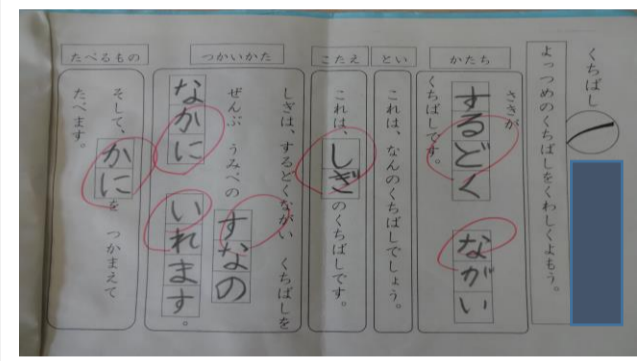 くちばし 一
よっつめのくちばしをくわしくよもう。
かたち
さきが するどく ながい
くちばしです。
とい
これは、なんのくちばしでしょう。
こたえ
これは、しぎのくちばしです。
つかいかた
しぎは、するどくながい くちばしを
ぜんぶ うみべの すなの
なかに いれます。
たべるもの
そして、かにを つかまえて
たべます。